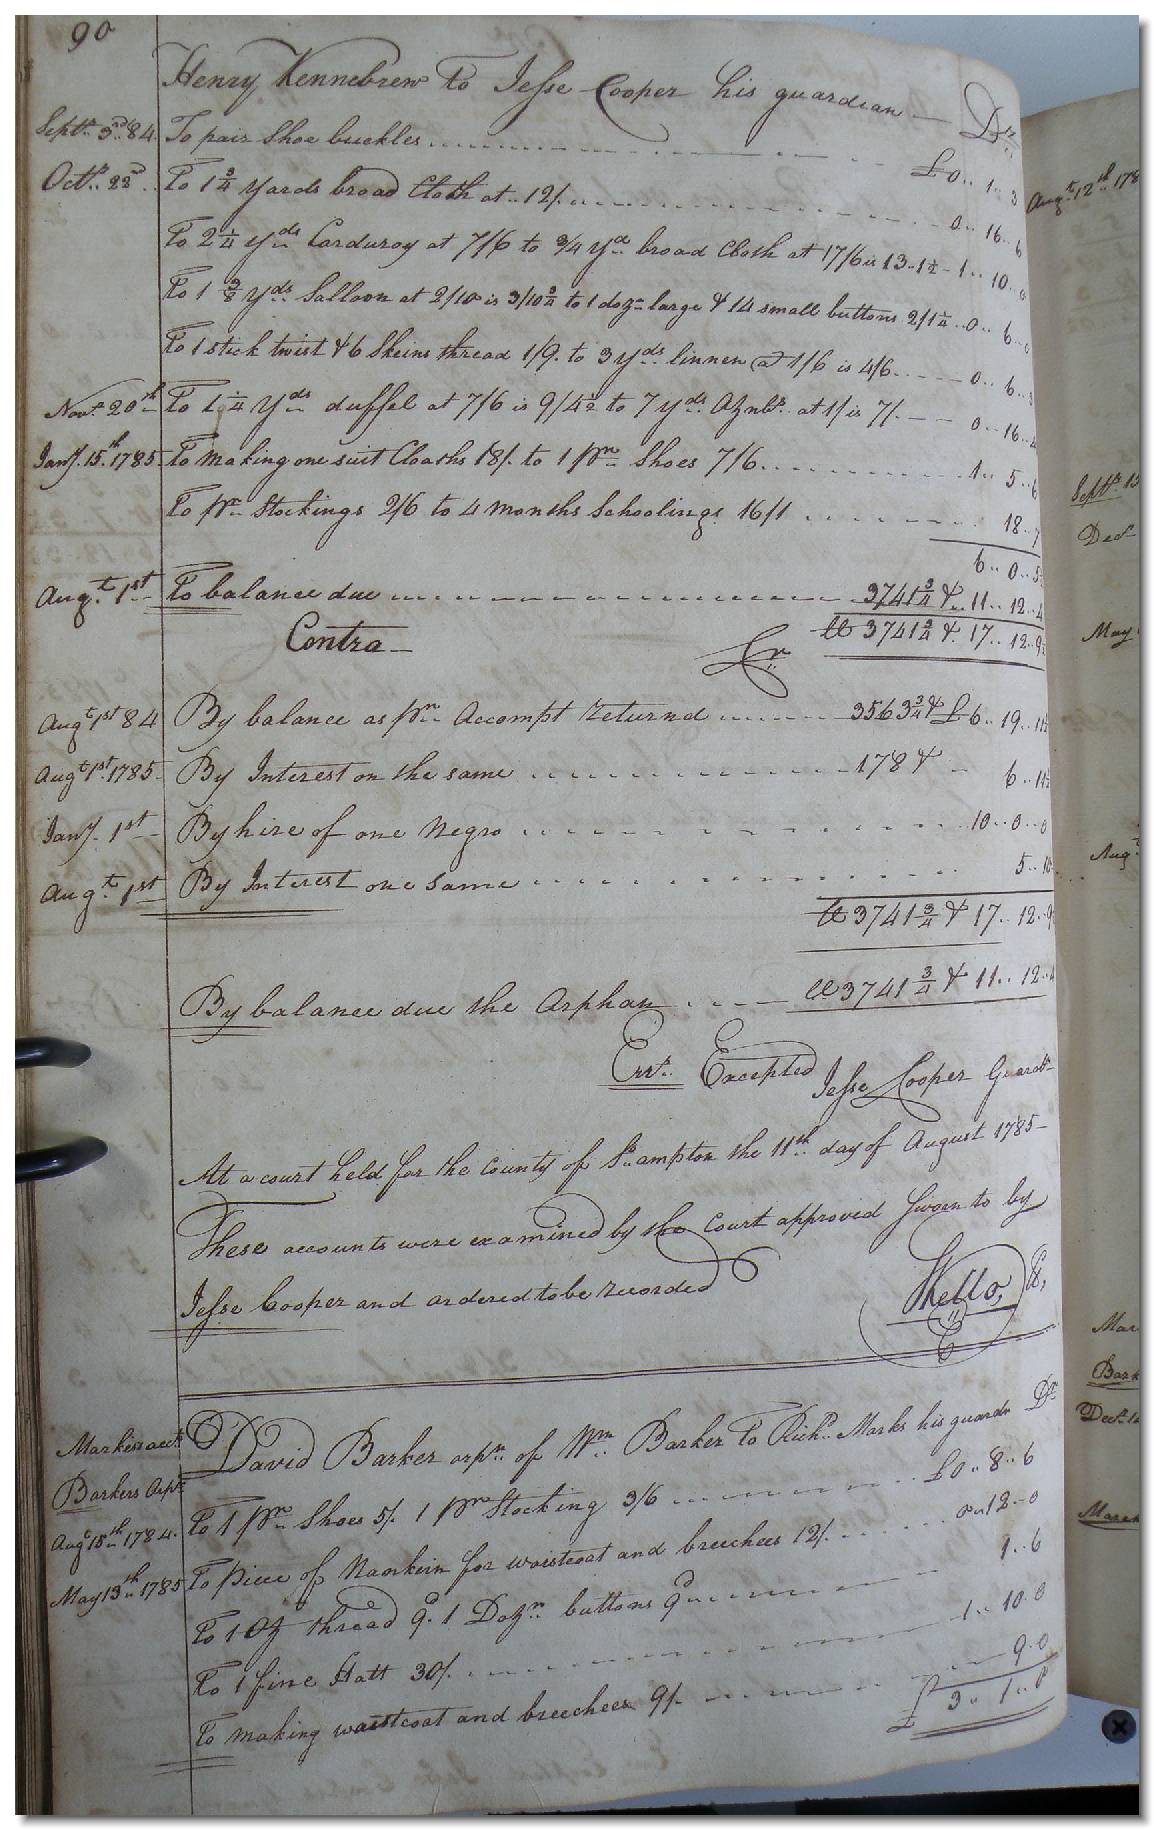 90
Henry Kennebrew To Jesse Cooper his guardian — Dr
Septr. 3d. 84. To pair Shoe buckles £0.. 1.. 3
Octr. 22d. To 1 3/4 Yards broad Cloth at 12/. 0.. 16.. 6
To 2 1/4 yds Corduroy at 7/6 to 3/4 yd broad Cloth at 17/6 is 13-1 1/2 - 1.. 10.. 0
To 1 3/8 yds. Salloon at 2/10 is 3/10 3/4 to 1 dozn large & 14 small buttons 2/1 1/4 .. 0.. 6..
To 1 stick twist & 6 Skeins thread 1/9. to 3 yds linnen @ 1/6 is 4/6 0.. 6.. 3
Novr. 20th To 1 1/4 yds duffel at 7/6 is 9/4 1/2 to 7 yds. at 1/ is 7/. — 0.. 16.. 4
Jany. 15th. 1785 To making one suit Cloaths 18/. to 1 pr Shoes 7/6 1.. 5.. 6
To pr Stockings 2/6 to 4 months Schoolings 16/1 18.. 7
6.. 0.. 5
Augt. 1st To balance due 3741 3/4 & .. 11.. 12.. 4
lb 3741 3/4 & 17.. 12.. 9
Contra — Cr
Augt 1st 84 By balance as pr Accompt returnd 3563 3/4 & £6.. 19.. 11 1/2
Augt 1st. 1785 By Interest on the same 178 & — 6.. 11 1/2
Jany. 1st By hire of one Negro 10.. 0.. 0
Augt. 1st By Interest one same 5.. 10
lb 3741 3/4 & 17.. 12.. 9
By balance due the Orphan lb 3741 3/4 & 11.. 12.. 4
Err. Excepted Jesse Cooper Guardn
At a court held for the County of So.ampton the 11th. day of August 1785 —
These accounts were examined by the Court approved Sworn to by
Jesse Cooper and ordered to be recorded
Marks's acct. David Barker orpn. of Wm. Barker To Richd. Marks his guardn Dr
Barkers Orpn.
Augt 15th 1784. To 1 pr Shoes 5/. 1 pr Stocking 3/6 £0.. 8.. 6
May 13th 1785 To piece of Nankein for waistcoat and breeches 12/. 0.. 12.. 0
To 1 Oz thread 9d. 1 Dozn buttons 9d 1.. 6
To 1 fine Hatt 30/. 1.. 10.. 0
To making waistcoat and breeches 9/. 9.. 0
£ 3.. 1.. 0
Augt. 12th 178
Septr 15
Decr
May
Augt
Mar
Bark
Decr. 1
March